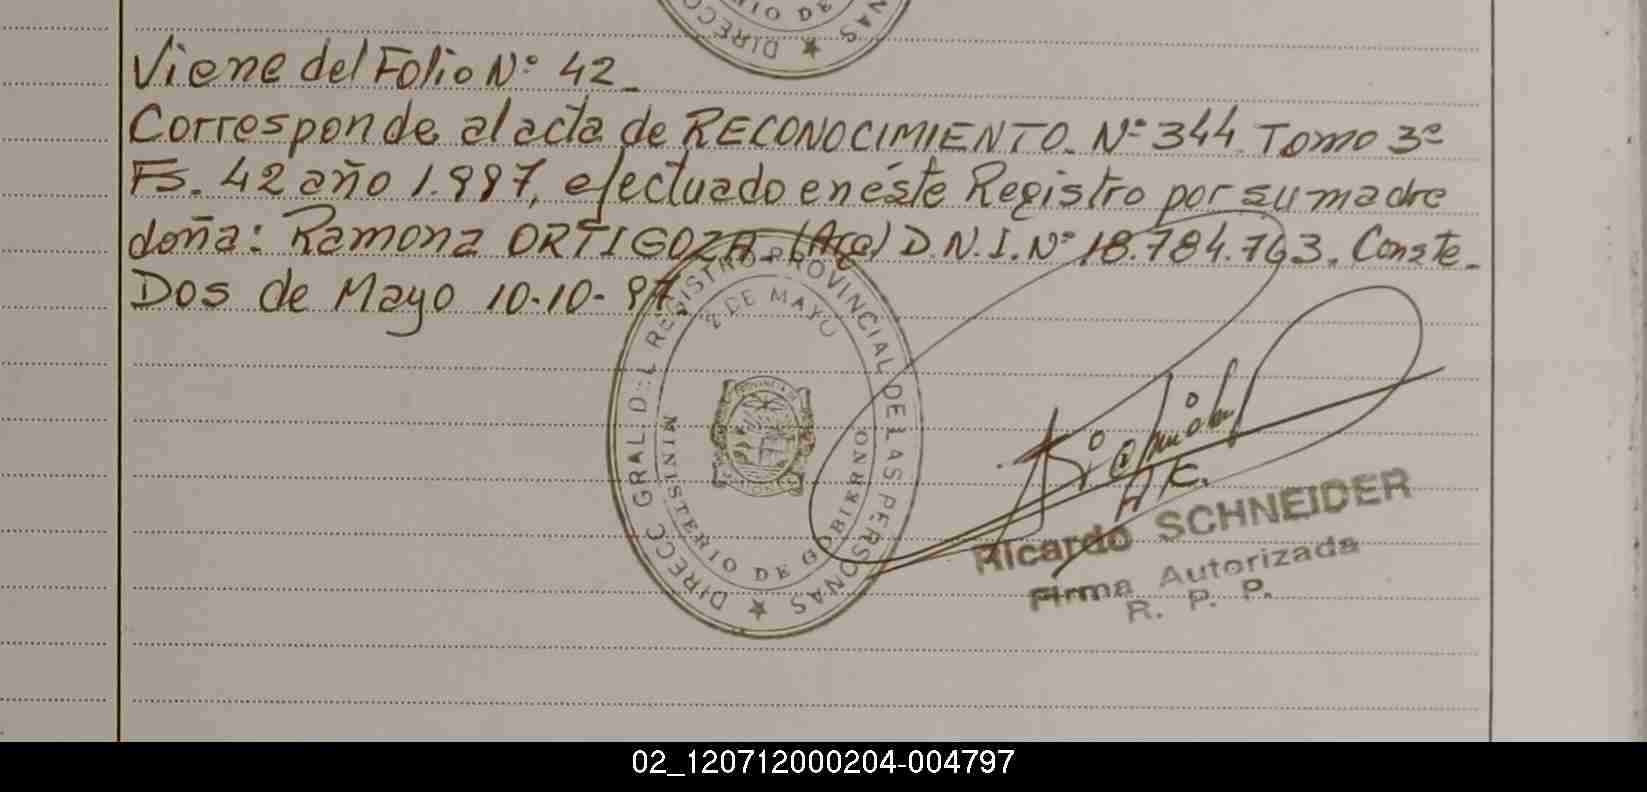 Viene del Folio Nº 42_
Corresponde al acta de RECONOCIMIENTO_ Nº 344 Tomo 3º
Fs. 42 año 1.997, efectuado en éste Registro por su madre
doña: Ramona ORTIGOZA_ (Arg) D.N.I. Nº 18.784.763. Conste_
Dos de Mayo 10-10-97
DIRECC GRAL DEL REGISTRO PROVINCIAL DE LAS PERSONAS
2 DE MAYO
MINISTERIO DE GOBIERNO
Ricardo SCHNEIDER
Firma Autorizada
R. P. P.
02_120712000204-004797